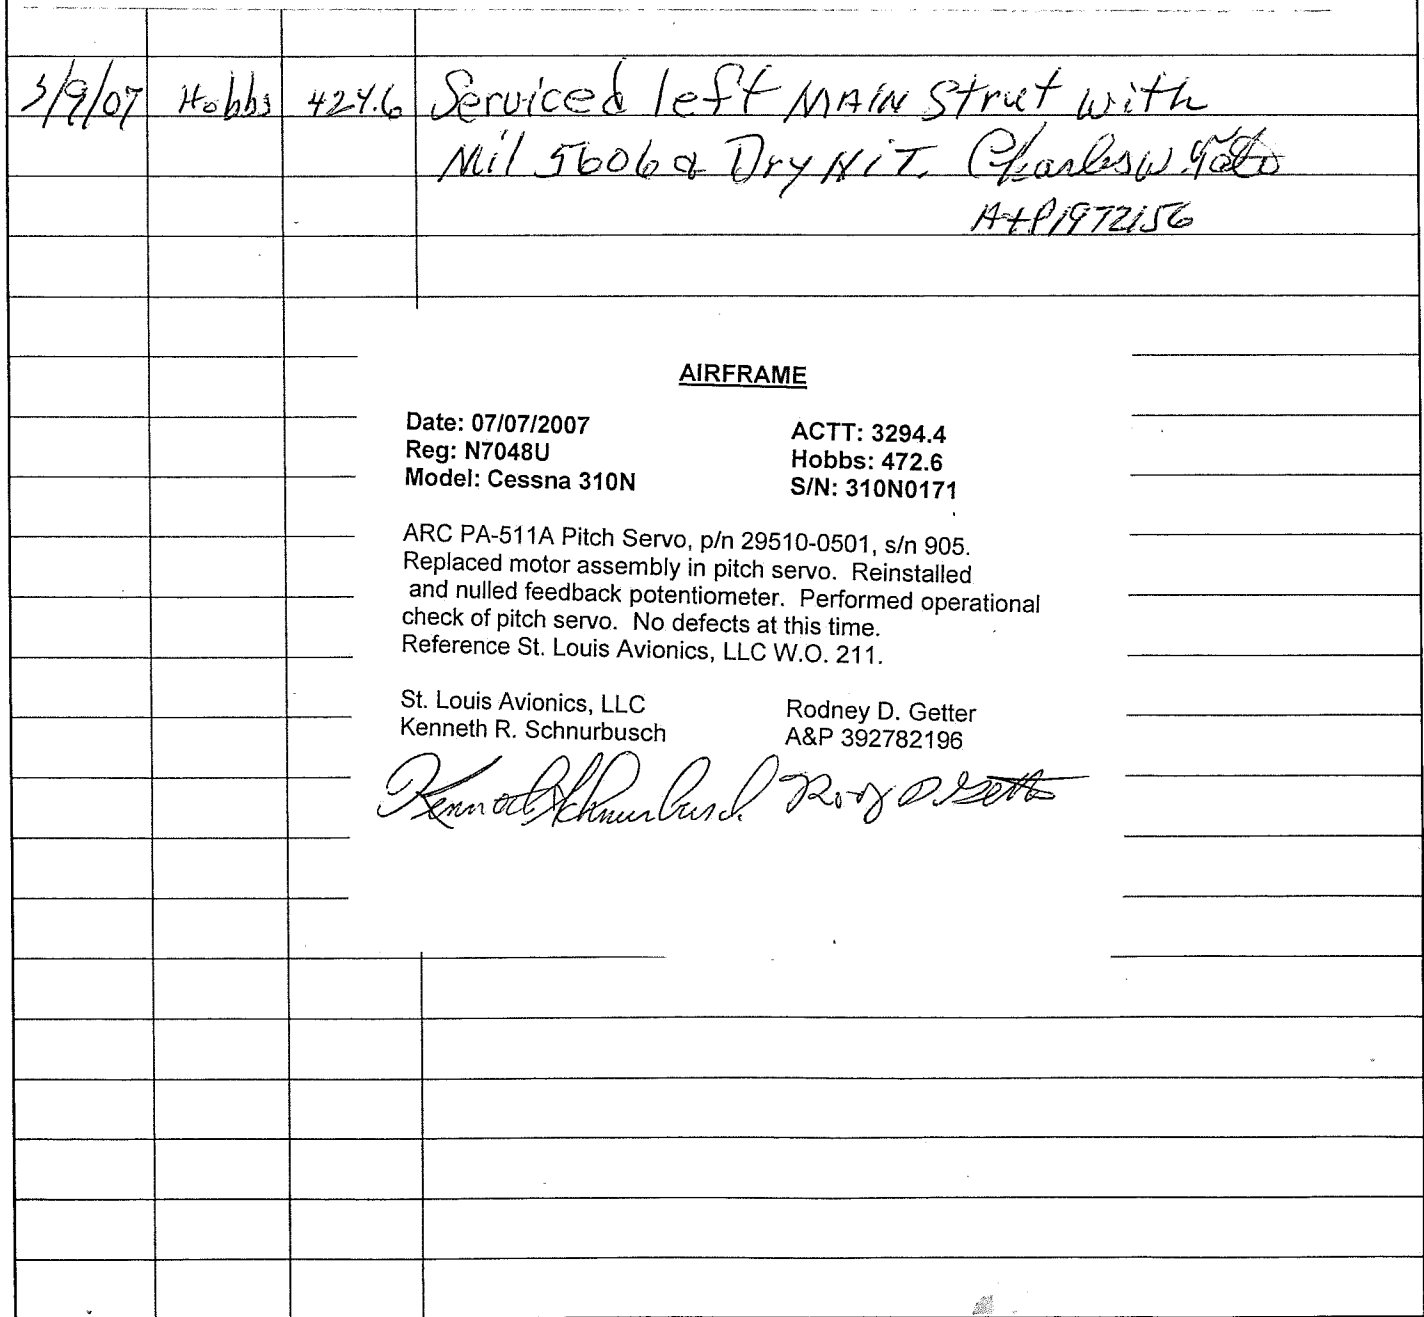 3/9/07 Hobbs 424.6 Serviced left MAIN Strut with
Mil 5606 & Dry NiT. Charles W.
A+P 1972156
AIRFRAME
Date: 07/07/2007 ACTT: 3294.4
Reg: N7048U Hobbs: 472.6
Model: Cessna 310N S/N: 310N0171
ARC PA-511A Pitch Servo, p/n 29510-0501, s/n 905.
Replaced motor assembly in pitch servo. Reinstalled
and nulled feedback potentiometer. Performed operational
check of pitch servo. No defects at this time.
Reference St. Louis Avionics, LLC W.O. 211.
St. Louis Avionics, LLC Rodney D. Getter
Kenneth R. Schnurbusch A&P 392782196
Kenneth Schnurbusch Rody D. Getter